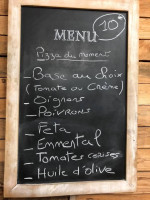 MENU
10€
Pizza du moment
_ Base au choix
(Tomate ou Crème)
_ Oignons
_ POIVRONS
_ Feta
_ Emmental
_ Tomates cerises
_ Huile d'olive